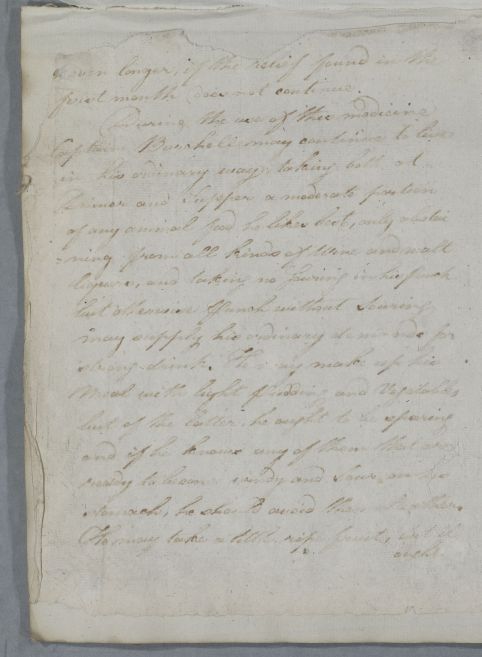 or even longer, if the relief found in the
first month does not continue.
During the use of this medicine
Captain may continue to live
in his ordinary way, taking both at
Dinner and Supper a moderate portion
of any animal food he likes best, only abstai
=ning from all kinds of Wine and malt
liquors, and taking no Souring in his punch
but otherwise Punch without Souring
may supply his ordinary demands for
strong drink. He may make up his
meal with light pudding and Vegetables
but of the latter he ought to be sparing
and if he knows any of them that are
ready to become windy and sour on his
stomach, he should avoid them altogether.
He may take a little ripe fruit, but it
ought